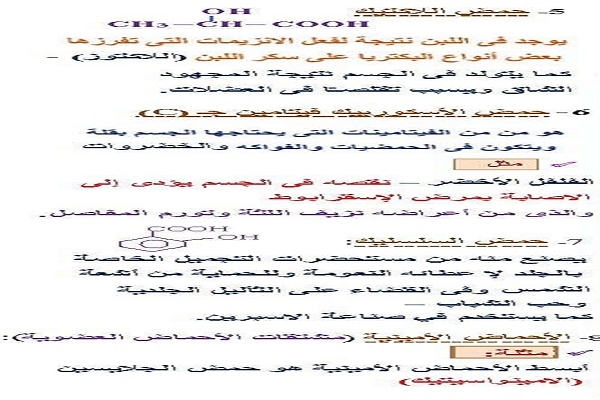 5- حمض اللاكتيك
OH
CH₃ – CH – COOH
يوجد فى اللبن نتيجة لفعل الانزيمات التى تفرزها
بعض أنواع البكتريا على سكر اللبن (اللاكتوز) –
كما يتولد فى الجسم نتيجة المجهود
الشاق ويسبب تقلصا فى العضلات.
6- حمض الأسكوربيك فيتامين جـ (C)
هو من من الفيتامينات التى يحتاجها الجسم بقلة
ويتكون فى الحمضيات والفواكه والخضروات
مثل
الفلفل الأخضر – نقصه فى الجسم يؤدى إلى
الاصابة بمرض الإسقرابوط
والذى من أعراضه نزيف اللثة وتورم المفاصل.
COOH
OH
7- حمض السلسليك:
يصنع منه من مستحضرات التجميل الخاصة
بالجلد لإعطائه النعومة وللحماية من أشعة
الشمس وفى القضاء على الثأليل الجلدية
وحب الشباب –
كما يستخدم في صناعة الاسبرين.
8- الأحماض الأمينية (مشتقات الأحماض العضوية):
مثلة:
أبسط الأحماض الأمينية هو حمض الجلايسين
(الامينواسيتيك)